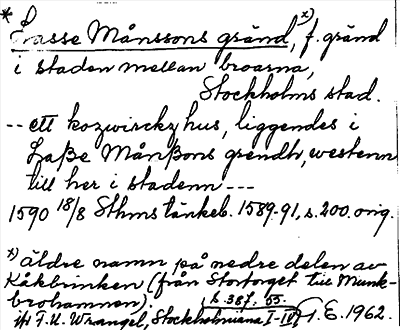 * Lasse Månssons gränd, x) f. gränd
i staden mellan broarna,
Stockholms stad.
-- ett kozwirckz hus, liggendes i
Laße Månßons grendh, westenn
till her i stadenn ---
1590 18/8 Sthms tänkeb. 1589-91, s. 200. orig.
x) äldre namn på nedre delen av
Kåkbrinken (från Stortorget till Munk-
brohamnen).
s. 387; 55.
F.U. Wrangel, Stockholmiana I-IV G.E. 1962.